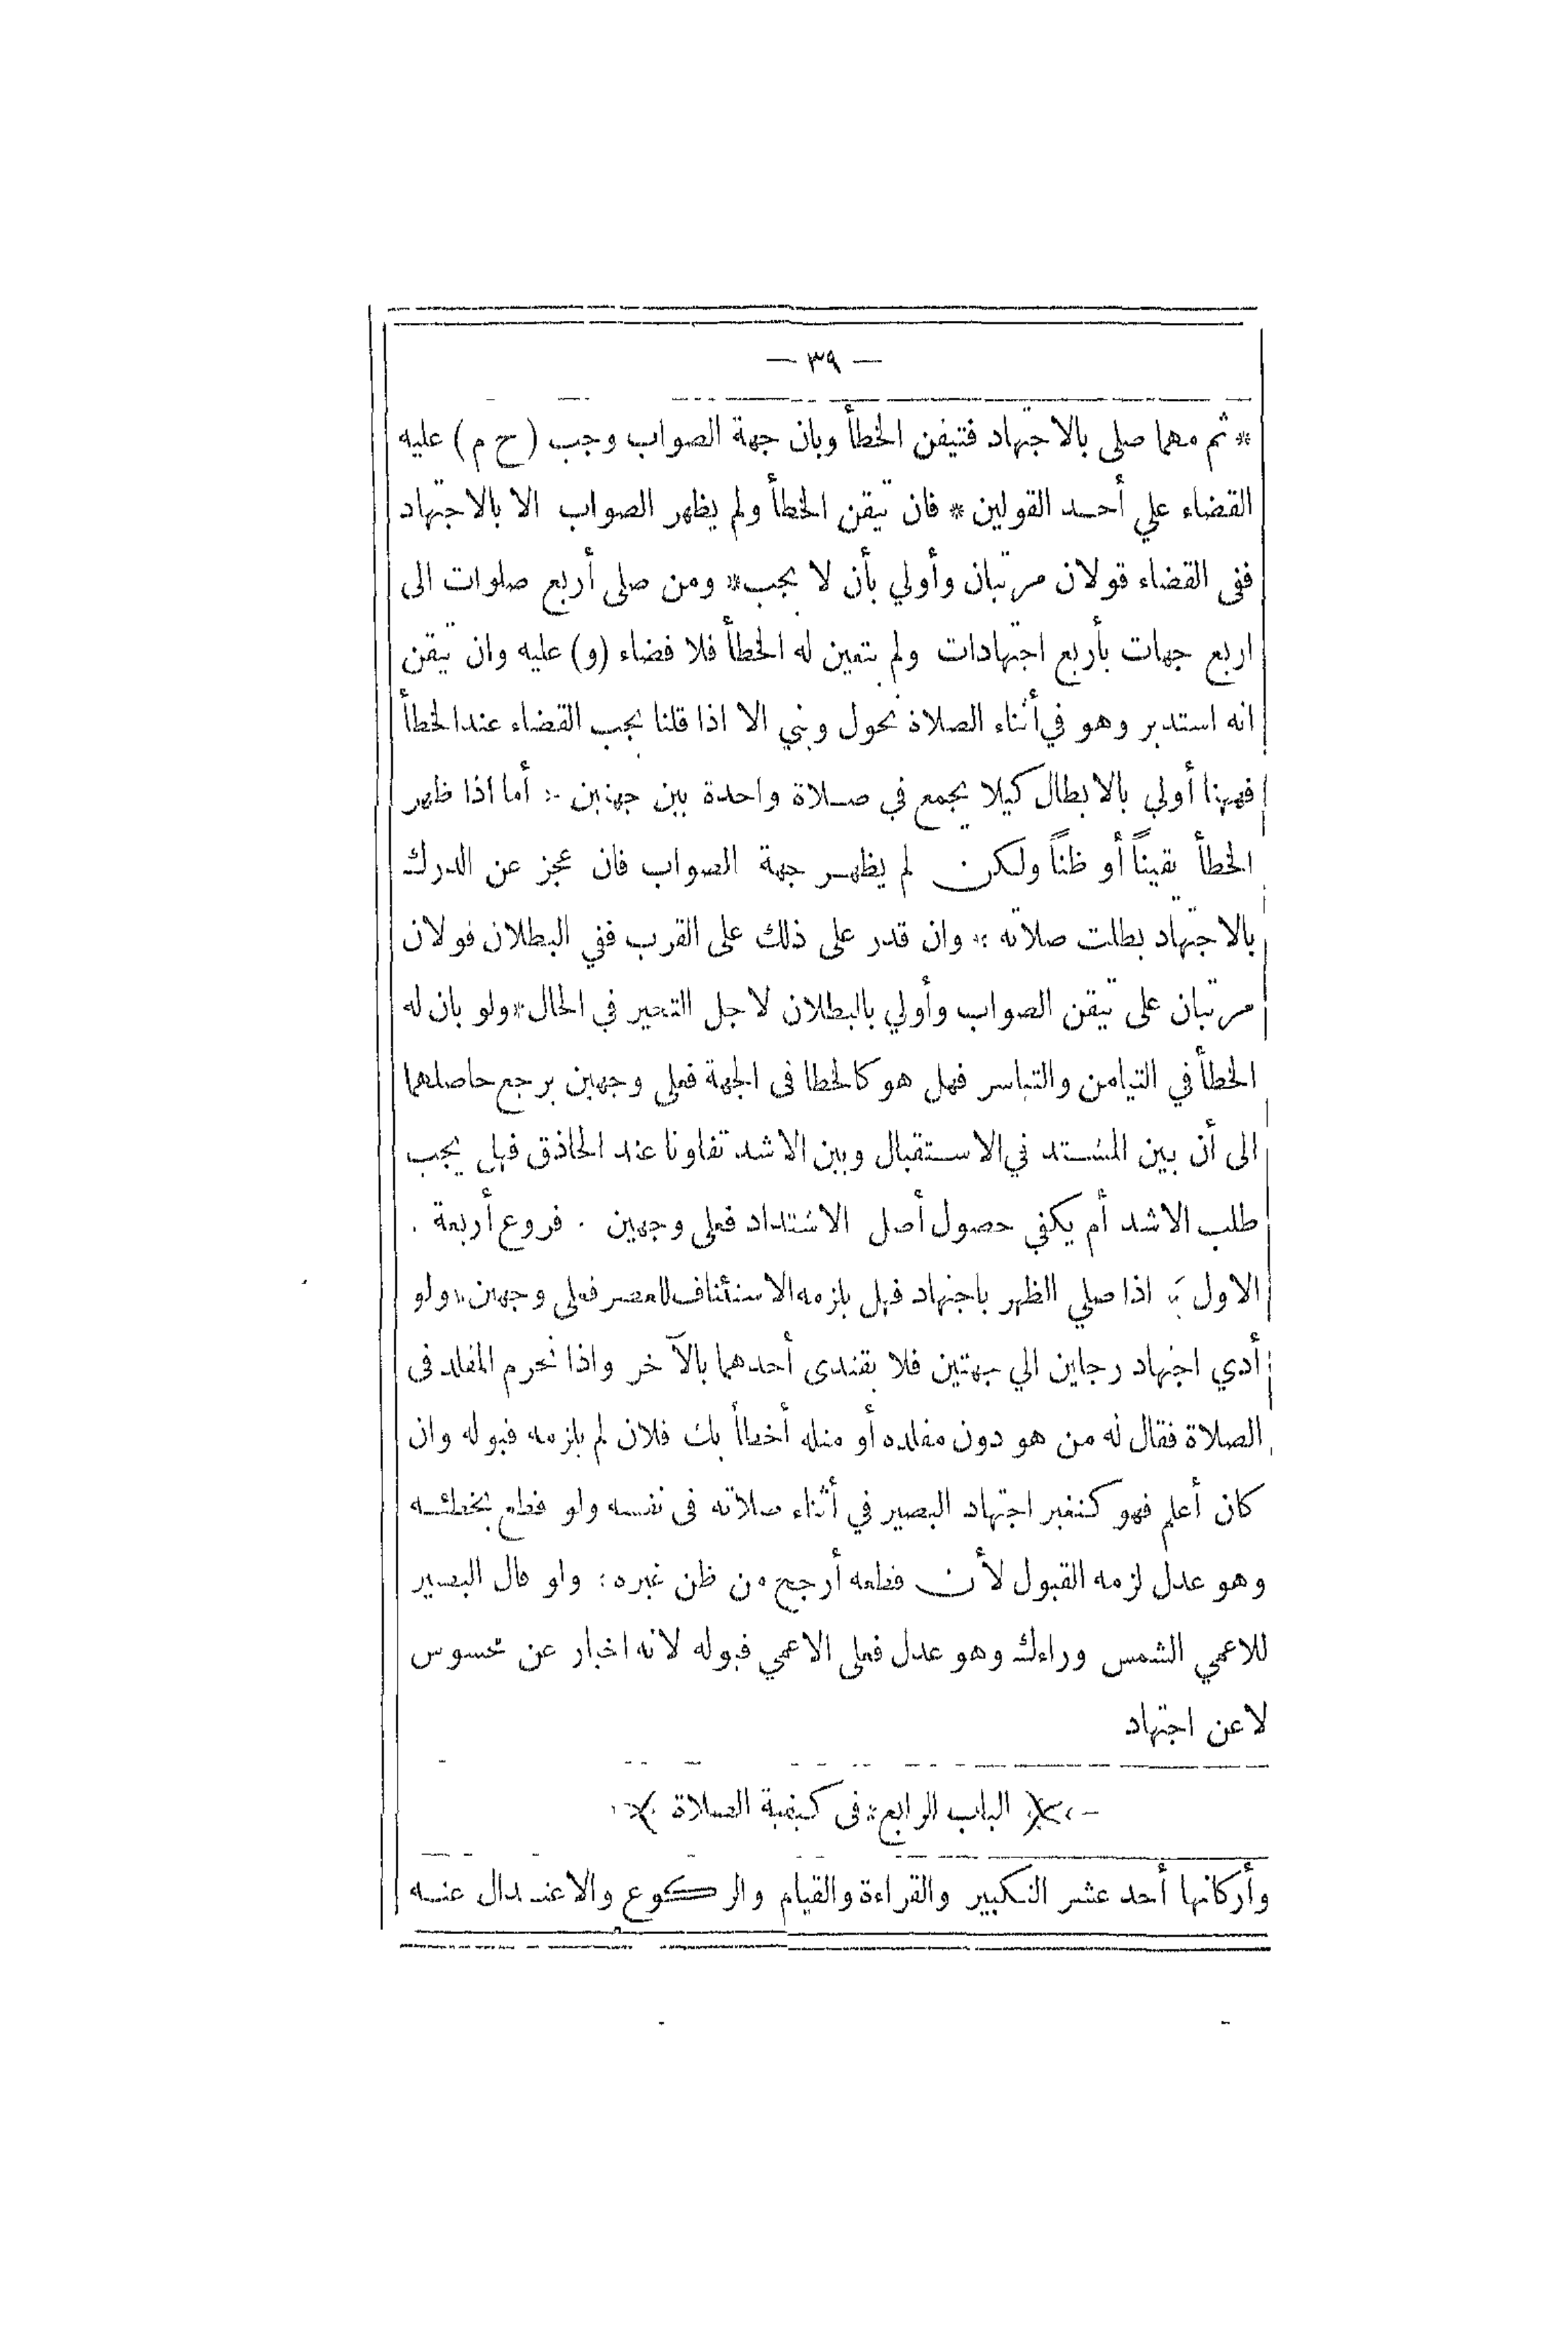 — ٣٩ —
* ثم مهما صلى بالاجتهاد فتيقن الخطأ وبان جهة الصواب وجب (ح م) عليه
القضاء علي أحد القولين * فان تيقن الخطأ ولم يظهر الصواب الا بالاجتهاد
ففى القضاء قولان مرتبان وأولي بأن لا يجب * ومن صلى أربع صلوات الى
اربع جهات بأربع اجتهادات ولم يتعين له الخطأ فلا قضاء (و) عليه وان تيقن
انه استدبر وهو في أثناء الصلاة تحول وبني الا اذا قلنا يجب القضاء عند الخطأ
فههنا أولي بالابطال كيلا يجمع في صلاة واحدة بين جهتين * أما اذا ظهر
الخطأ يقيناً أو ظناً ولكن لم يظهر جهة الصواب فان عجز عن الدرك
بالاجتهاد بطلت صلاته * وان قدر على ذلك على القرب ففي البطلان قولان
مرتبان على تيقن الصواب وأولي بالبطلان لاجل التحير في الحال * ولو بان له
الخطأ في التيامن والتياسر فهل هو كالخطا فى الجهة فعلى وجهين يرجع حاصلهما
الى أن بين المشتد في الاستقبال وبين الاشد تفاوتا عند الحاذق فهل يجب
طلب الاشد أم يكفي حصول أصل الاشتداد فعلى وجهين . فروع أربعة .
الاول * اذا صلي الظهر باجتهاد فهل يلزمه الاستئناف للعصر فعلى وجهين * ولو
أدي اجتهاد رجلين الي جهتين فلا يقتدى أحدهما بالآخر واذا تحرم المقلد فى
الصلاة فقال له من هو دون مقلده أو مثله أخطأ بك فلان لم يلزمه قبوله وان
كان أعلم فهو كتغير اجتهاد البصير في أثناء صلاته فى نفسه ولو قطع بخطئه
وهو عدل لزمه القبول لأن قطعه أرجح من ظن غيره * ولو قال البصير
للاعمي الشمس وراءك وهو عدل فعلى الاعمي قبوله لانه اخبار عن محسوس
لا عن اجتهاد
الباب الرابع * فى كيفية الصلاة
وأركانها أحد عشر التكبير والقراءة والقيام والركوع والاعتدال عنه